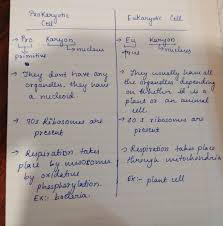 Prokaryotic
Cell
Eukaryotic Cell
→ Pro Karyon
primitive nucleus
→ Eu Karyon
true nucleus
→ They dont have any
organelles. they have
a nucleoid.
→ They usually have all
the organelles depending
on whether it is a
plant or an animal
cell.
→ 70s ribosomes are
present
→ 80 s ribosomes are
present
→ Respiration takes
place by mesosomes
by oxidative
phosphorylation.
Ex:- bacteria.
→ Respiration takes place
through mitochondria
Ex:- plant cell